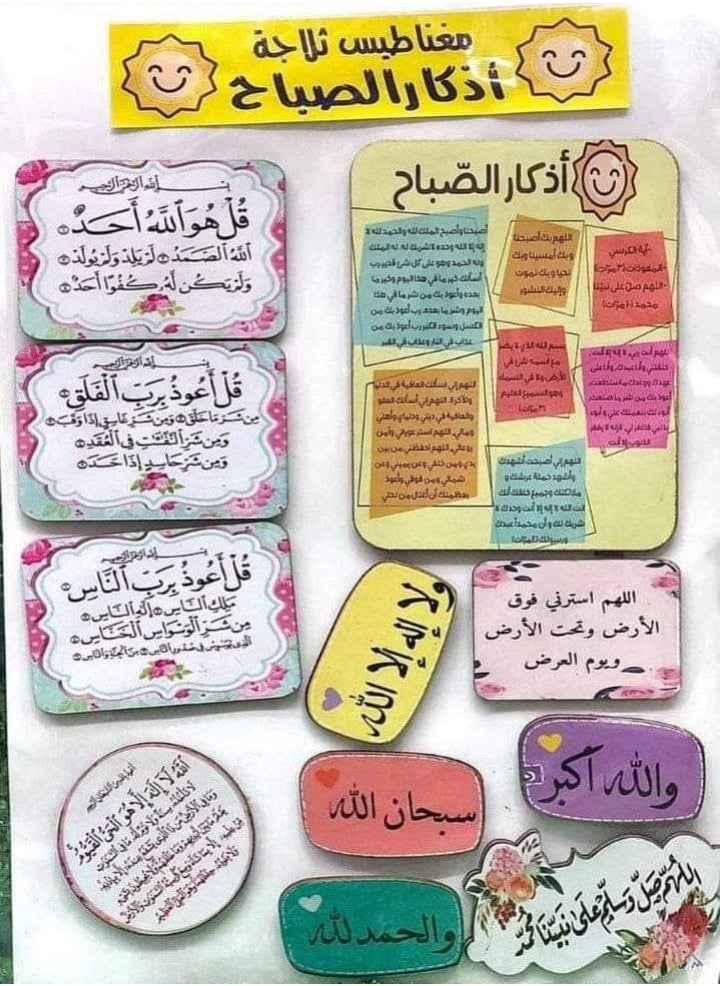 مغناطيس ثلاجة
أذكار الصباح
قُلْ هُوَ ٱللَّهُ أَحَدٌ
ٱللَّهُ ٱلصَّمَدُ لَمْ يَلِدْ وَلَمْ يُولَدْ
وَلَمْ يَكُن لَّهُۥ كُفُوًا أَحَدٌ
قُلْ أَعُوذُ بِرَبِّ ٱلْفَلَقِ
مِن شَرِّ مَا خَلَقَ وَمِن شَرِّ غَاسِقٍ إِذَا وَقَبَ
وَمِن شَرِّ ٱلنَّفَّٰثَٰتِ فِي ٱلْعُقَدِ
وَمِن شَرِّ حَاسِدٍ إِذَا حَسَدَ
قُلْ أَعُوذُ بِرَبِّ ٱلنَّاسِ
مَلِكِ ٱلنَّاسِ إِلَٰهِ ٱلنَّاسِ
مِن شَرِّ ٱلْوَسْوَاسِ ٱلْخَنَّاسِ
ٱلَّذِي يُوَسْوِسُ فِي صُدُورِ ٱلنَّاسِ مِنَ ٱلْجِنَّةِ وَٱلنَّاسِ
أذكار الصّباح
-آية الكرسي
-المعوذات (٣ مرّات)
-اللهم صلّ على نبيّنا
محمد (١٠ مرّات)
اللهم بك أصبحنا
وبك أمسينا وبك
نحيا وبك نموت
وإليك النشور
أصبحنا وأصبح الملك لله والحمد لله لا
إله إلا الله وحده لا شريك له، له الملك
وله الحمد وهو على كل شئ قدير رب
أسألك خير ما في هذا اليوم وخير ما
بعده وأعوذ بك من شر ما في هذا
اليوم وشر ما بعده، رب أعوذ بك من
الكسل وسوء الكبر رب أعوذ بك من
عذاب في النار وعذاب في القبر
بسم الله الذي لا يضر
مع اسمه شئ في
الأرض ولا في السماء
وهو السميع العليم
اللهم أنت ربي لا إله إلا أنت
خلقتني وأنا عبدك، وأنا على
عهدك ووعدك ما استطعت
أعوذ بك من شر ما صنعت
أبوء لك بنعمتك علي و أبوء
بذنبي فاغفر لي، فإنه لا يغفر
الذنوب إلا أنت
اللهم إني أسألك العافية في الدنيا
والآخرة، اللهم إني أسألك العفو
والعافية في ديني ودنياي وأهلي
ومالي، اللهم استر عوراتي وآمن
روعاتي، اللهم احفظني من بين
يدي ومن خلفي وعن يميني وعن
شمالي ومن فوقي وأعوذ
بعظمتك أن أغتال من تحتي
اللهم إني أصبحت أشهدك
وأشهد حملة عرشك و
ملائكتك وجميع خلقك أنك
أنت الله لا إله إلا أنت وحدك لا
شريك لك و أن محمداً عبدك
ورسولك (٤ مرّات)
ولا إله إلا الله
اللهم استرني فوق
الأرض وتحت الأرض
ويوم العرض
والله أكبر
سبحان الله
والحمد لله
اللَّهُمَّ صَلِّ وَسَلِّمْ عَلَى نَبِيِّنَا مُحَمَّد
ٱللَّهُ لَآ إِلَٰهَ إِلَّا هُوَ ٱلْحَيُّ ٱلْقَيُّومُ